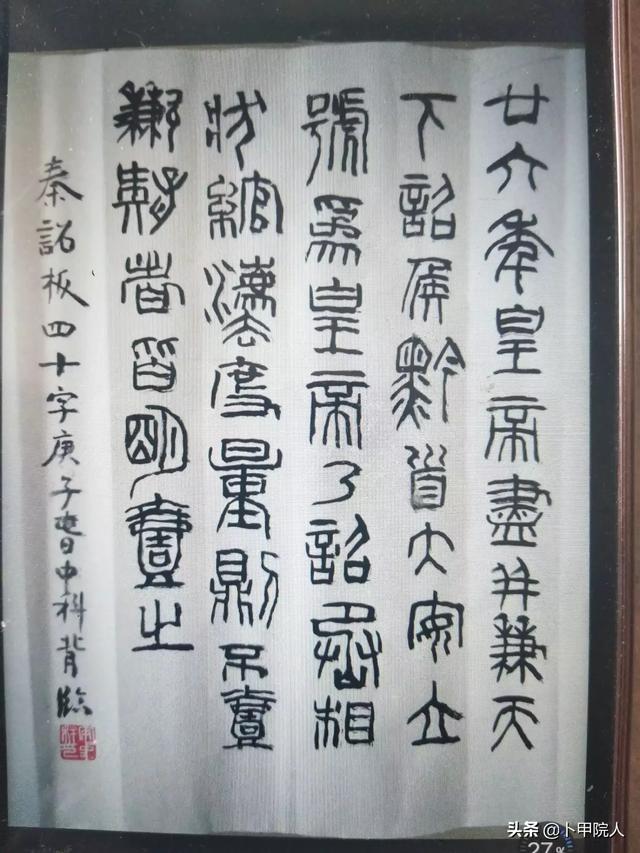 廿六年皇帝盡并兼天
下諸侯黔首大安立
號為皇帝乃詔丞相
狀綰灋度量則不壹
歉疑者皆明壹之
秦詔板四十字庚子春中科背臨
头条 @卜甲院人
27%